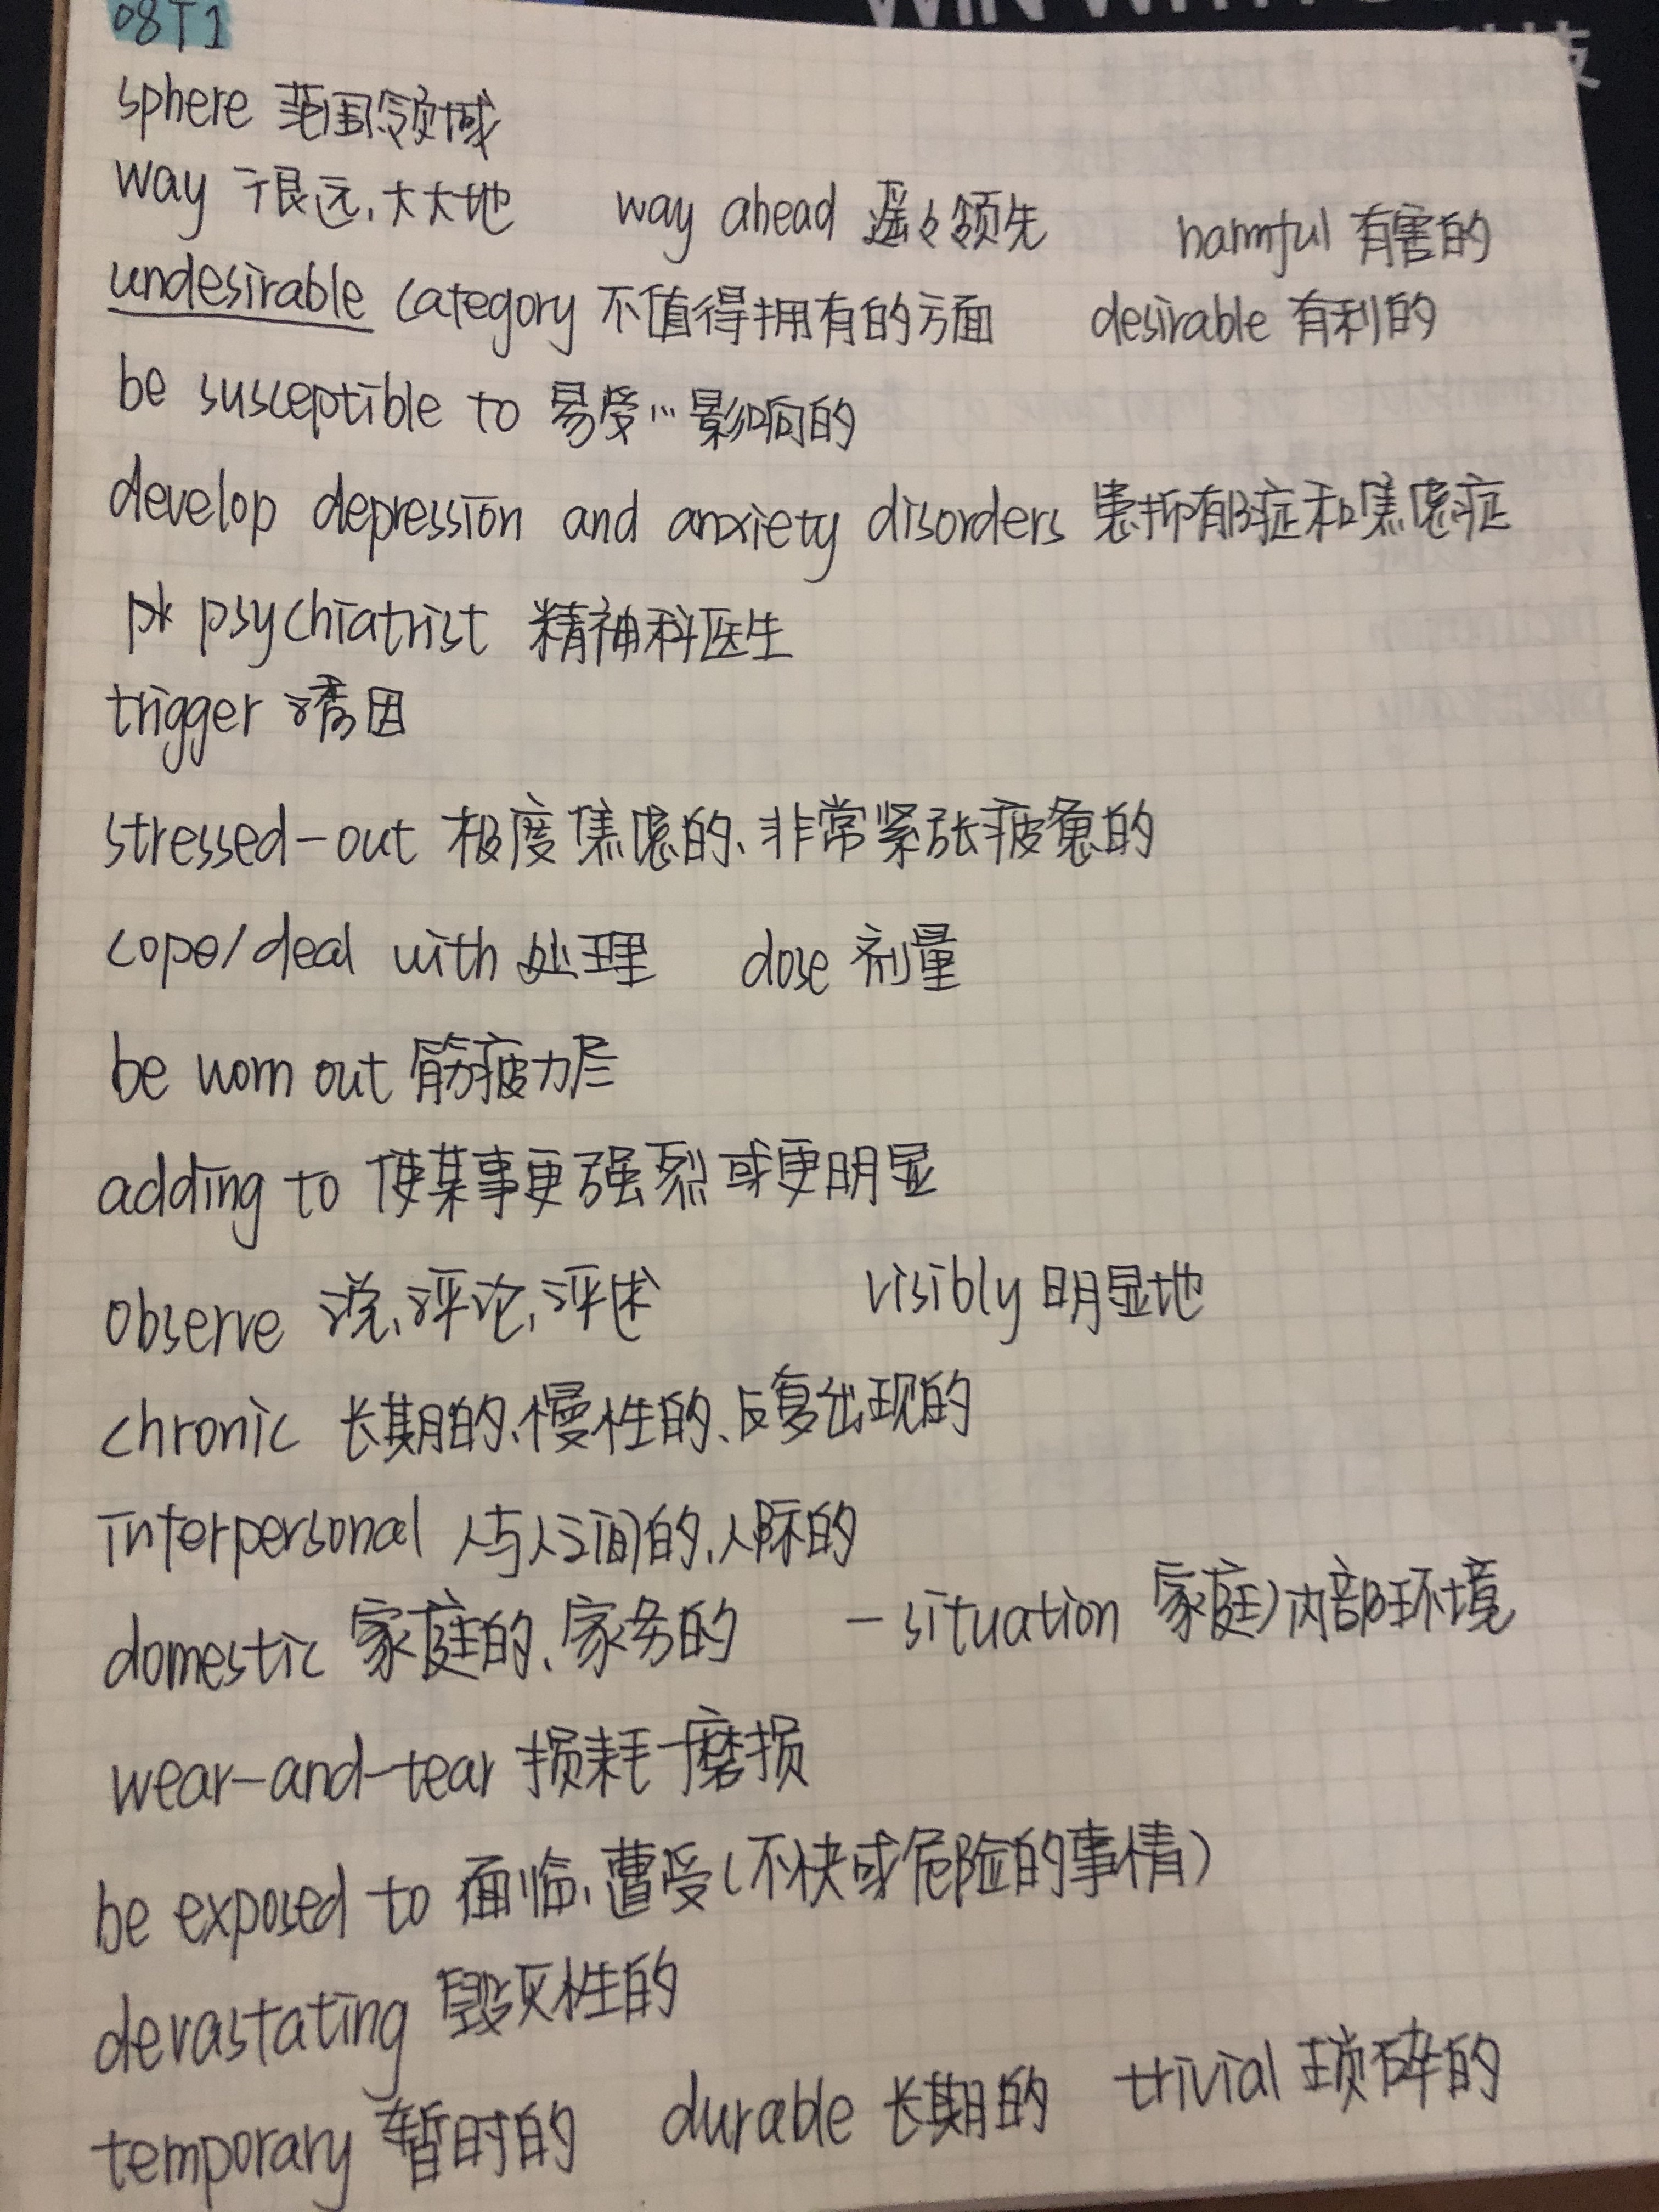 WIN WITH
技
08T1
sphere 范围、领域
way 很远、大大地 way ahead 遥遥领先 harmful 有害的
undesirable category 不值得拥有的方面 desirable 有利的
be susceptible to 易受…影响的
develop depression and anxiety disorders 患抑郁症和焦虑症
psychiatrist 精神科医生
trigger 诱因
stressed-out 极度焦虑的、非常紧张疲惫的
cope/deal with 处理 dose 剂量
be worn out 筋疲力尽
adding to 使某事更强烈或更明显
observe 说、评论、评述 visibly 明显地
chronic 长期的、慢性的、反复出现的
interpersonal 人与人之间的、人际的
domestic 家庭的、家务的 —situation 家庭内部环境
wear-and-tear 损耗 磨损
be exposed to 面临、遭受(不快或危险的事情)
devastating 毁灭性的
temporary 暂时的 durable 长期的 trivial 琐碎的